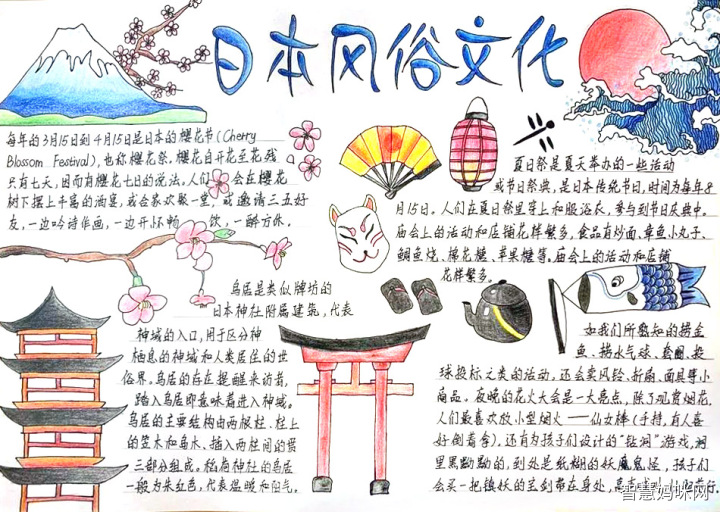 日本风俗文化
每年的3月15日到4月15日是日本的樱花节(Cherry
Blossom Festival),也称樱花祭,樱花自开花至花残
只有七天,因而有樱花七日的说法,人们 会在樱花
树下摆上丰富的酒宴,或会家欢聚一堂,或邀请三五好
友,一边吟诗作画,一边开怀畅 饮,一醉方休。
夏日祭是夏天举办的一些活动
或节日祭典,是日本传统节日,时间为每年8
月15日。人们在夏日祭里穿上和服浴衣,参与到节日庆典中。
庙会上的活动和店铺花样繁多,食品有炒面,章鱼小丸子、
鲷鱼烧、棉花糖、苹果糖等,庙会上的活动和店铺
花样繁多。
鸟居是类似牌坊的
日本神社附属建筑,代表
神域的入口,用于区分神
栖息的神域和人类居住的世
俗界。鸟居的存在提醒来访者,
踏入鸟居即意味着进入神域。
鸟居的主要结构由两根柱、柱上
的笠木和岛木、插入两柱间的贯
三部分组成。稻荷神社的鸟居
一般为朱红色,代表温暖和阳气。
如我们所熟知的捞金
鱼、捞水气球、套圈、投
球投标之类的活动,还会卖风铃、折扇、面具等小
商品。夜晚的花火大会是一大亮点,除了观赏烟花,
人们最喜欢放小型烟火——仙女棒(手持,有人喜
好倒着拿),还有为孩子们设计的"钻洞"游戏,洞
里黑黝黝的,到处是纸糊的妖魔鬼怪,孩子们
会买一把镇妖的宝剑带在身处,
智慧妈咪网